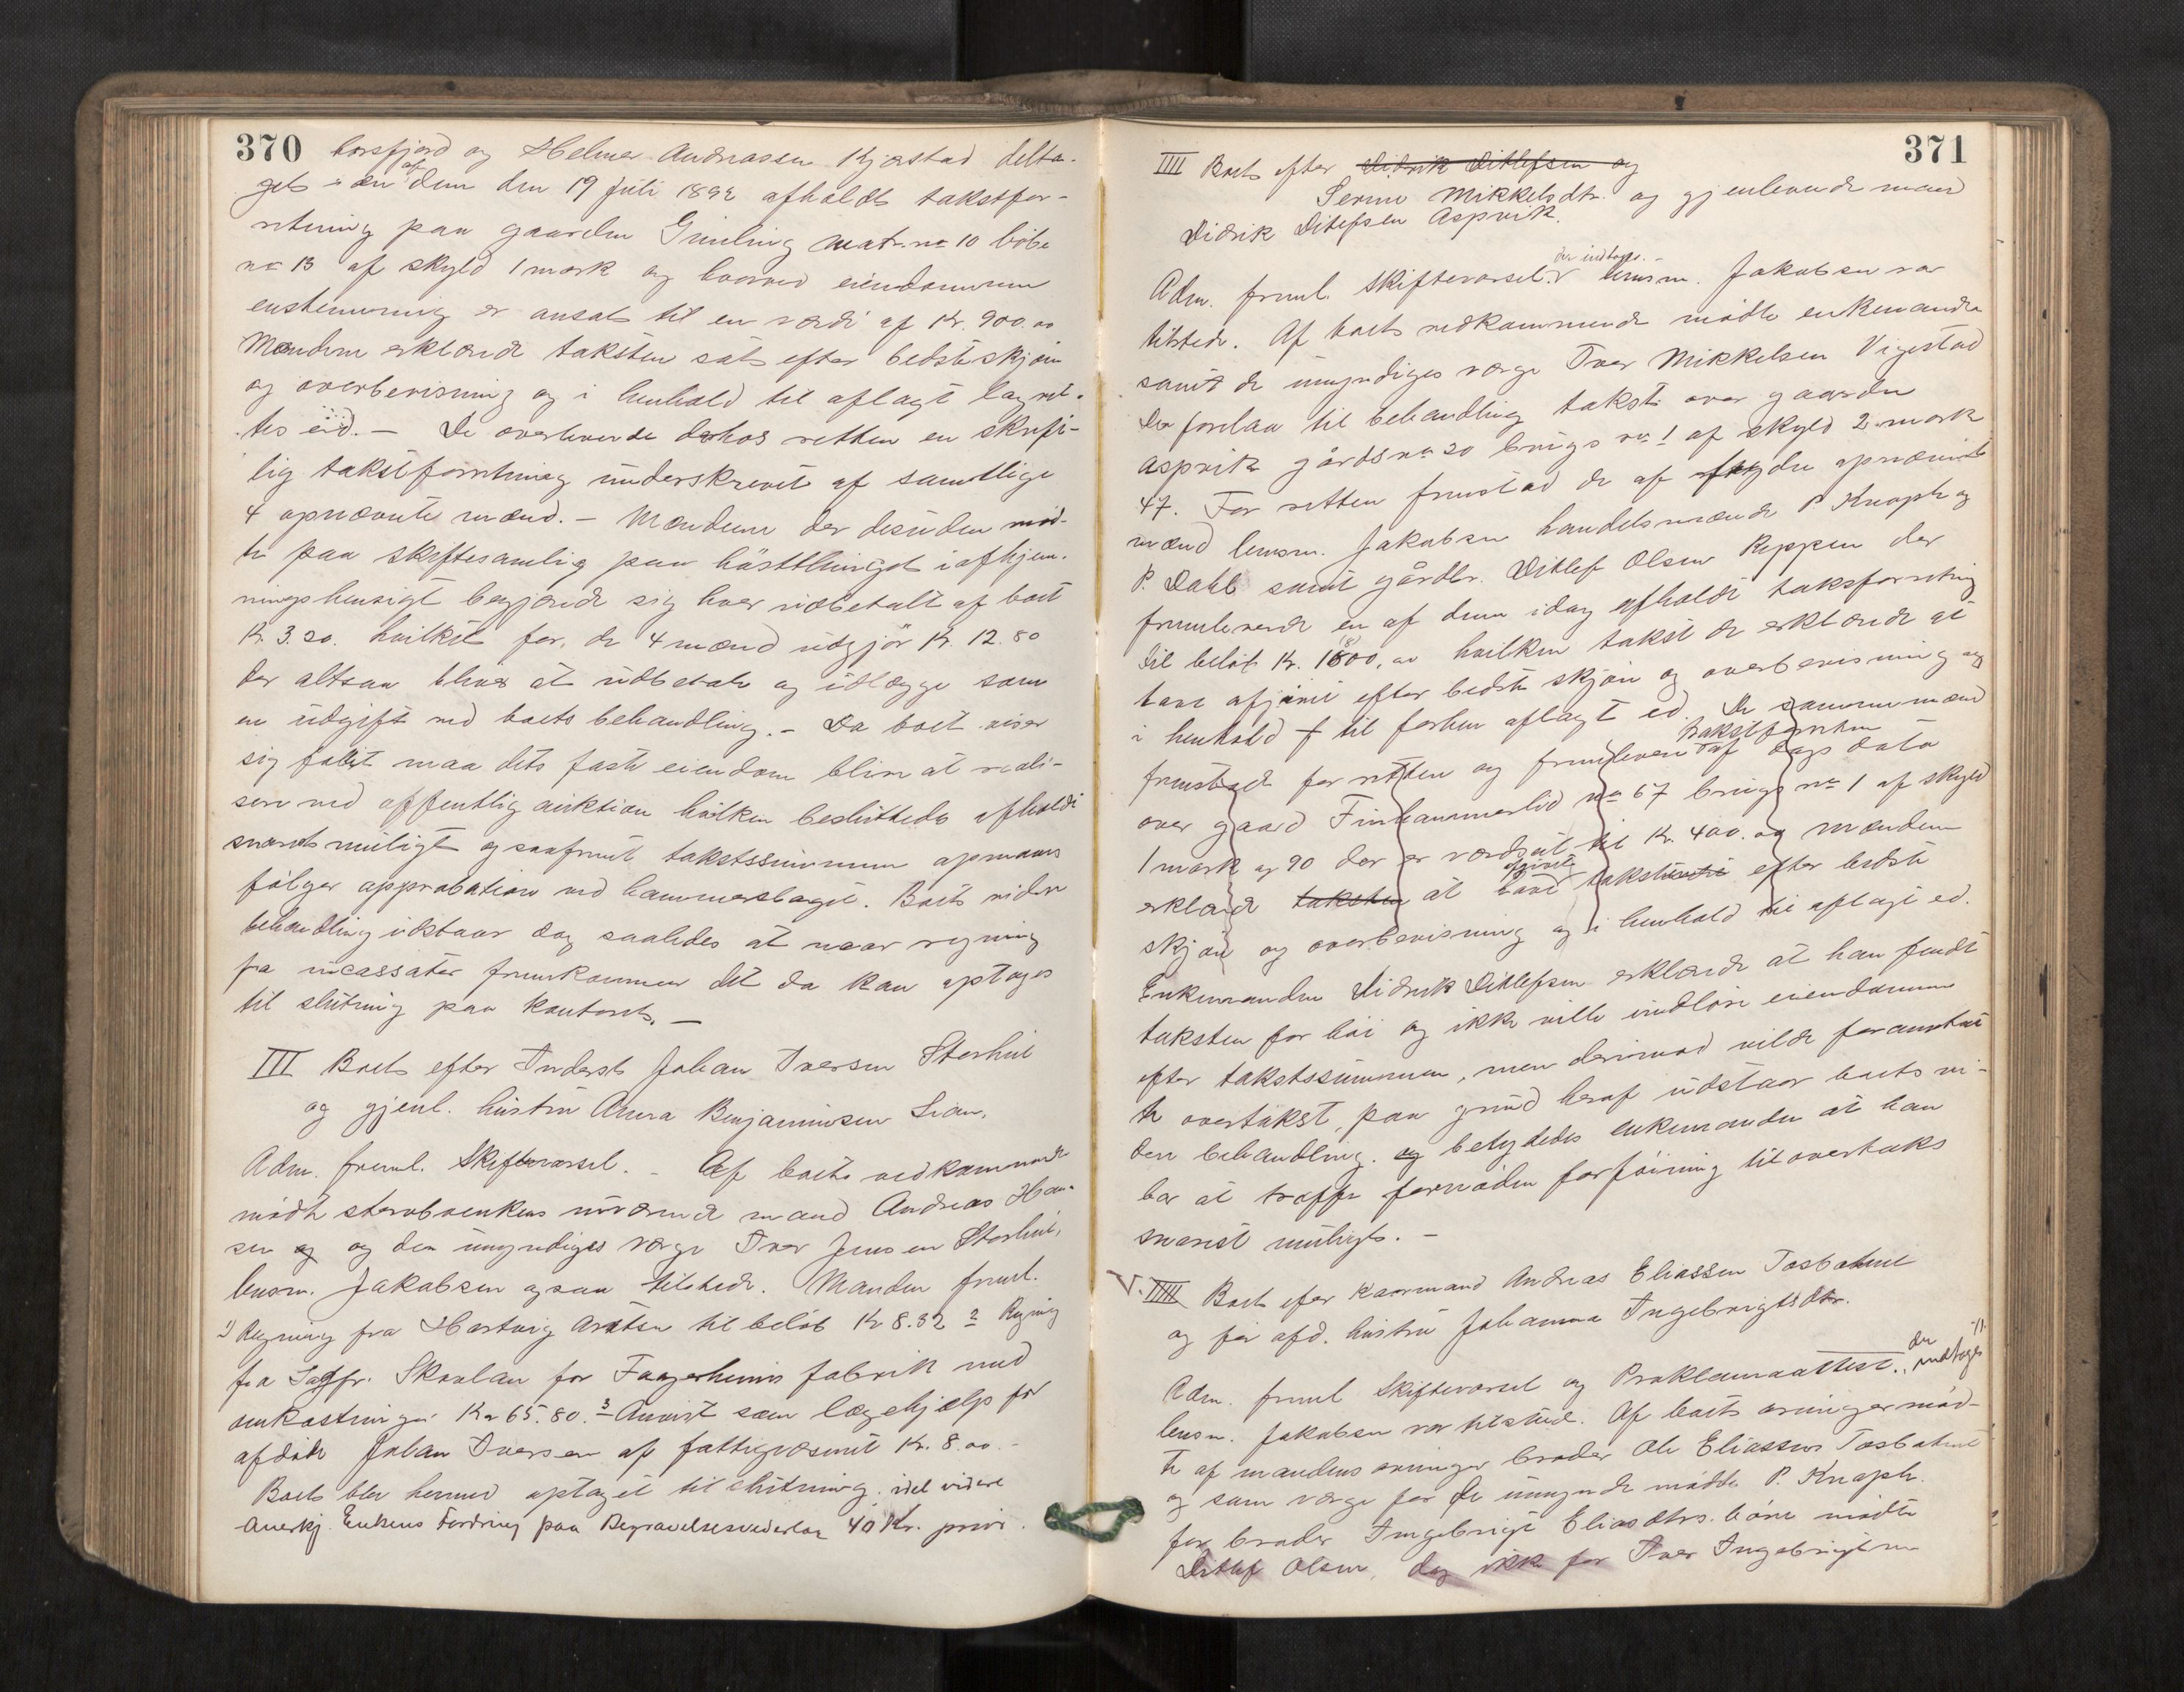 370
borsfjord og Helmer Andreassen Kjerstad delta-
get i en af dem den 19 Juli 1892 afholdt takstfor-
retning paa gaarden Grunling matr. no 10 løbe
no 13 af skyld 1 mark og hvorved eiendommen
enstemmig er ansat til en værdi af Kr. 900.00
Mændene erklærede taksten sat efter bedste skjøn
og overbevisning og i henhold til aflagt lagret-
tes eid. — De overleverede derhos retten en skrift-
lig takstforretning underskrevet af samtlige
4 opnævnte mænd. — Mændene der desuden mød-
te paa skiftesamling paa høstthinget i afhjem-
lingshensigt begjærede sig hver udbetalt af boet
Kr. 3.20. hvilket for de 4 mænd udgjør Kr. 12.80
der altsaa bliver at udbetale og udlægge som
en udgift ved boets behandling. — Da boet viser
sig fallit maa dets faste eiendom blive at reali-
sere ved offentlig auktion hvilken besluttedes afholdt
snarest muligt og saafremt takstsummen opnaaes
følger approbation ved hammerslaget. Boets videre
behandling udstaar dog saaledes at naar regning
fra incassator fremkommer det da kan optages
til slutning paa kontoret. —
III Boet efter Inderst Johan Iversen Storhul
og gjenl. hustru Anna Benjaminsen Lian.
Adm. freml. Skiftevarsel. — Af boets vedkommende
mødte sterbuenkens nuværende mand Andreas Han-
sen og og den umyndiges værge Iver Jensen Storhul,
lensm. Jakobsen ogsaa tilstede. Manden freml.
1) Regning fra Hartvig Arntsen til beløb Kr 8.32 2 Regning
fra Sagfr. Skaulan for Fagerheims fabrik med
omkostninger Kr 65.80. 3 Anvist som lægehjælp for
afdøde Johan Iversen af fattigvæsenet Kr. 8.00. —
Boet blev hermed optaget til slutning. idet videre
Anerkj. Enkens Fordring paa Begravelsesvederlag 40 Kr. priori.
371
IIII Boet efter Didrik Ditlefsen og
Serine Mikkelsdtr. og gjenlevende mand
Didrik Ditlefsen Aspvik.
der indtages. —
Adm. freml. Skiftevarsel. lensm. Jakobsen var
tilstede. Af boets vedkommende mødte enkemanden
samt de umyndiges værge Iver Mikkelsen Vigestad
Der forelaa til behandling takst over gaarden
Aspvik gårdsno 20 brugs no 1 af skyld 2 mark
47. For retten fremstod de af fogden opnævnte
mænd lensm. Jakobsen handelsmændene P. Knoph og
P. Dahl samt gårdbr. Ditlef Olsen Keppen der
fremleverede en af dem idag afholdt takstforretning
til beløb Kr. 1800.00 hvilken takst de erklærede at
have afgivet efter bedste skjøn og overbevisning og
i henhold til forhen aflagt ed. De samme mænd
takstforretn
fremstod for retten og fremleverede af dags dato
over gaard Finhammerlid no 67 brugs no 1 af skyld
1 mark og 90 der er værdsat til Kr. 400. og mændene
afgivet
erklærede taksten at have taksten efter bedste
skjøn og overbevisning og i henhold til aflagt ed.
Enkemanden Didrik Ditlefsen erklærede at han fandt
taksten for høi og ikke ville indløse eiendommen
efter takstsummen, men derimod vilde foranstal-
te overtakst, paa grund heraf udstaar boets vi-
dere behandling. og betydedes enkemanden at han
bør at træffe fornøden forføining til overtakst
snarest muligt. —
V. IIIII Boet efter Kaarmand Andreas Eliassen Tosbotnet
og før afd. hustru Johanna Ingebrigtsdtr.
Adm. freml. Skiftevarsel og Proklamaattest. der indtages
lensm. Jakobsen var tilstede. Af boets arvinger mød-
te af mandens arvinger broder Ole Eliassen Tosbotnet
og som værge for de umynde mødte P. Knoph.
for broder Ingebrigt Eliasdtrs. børn mødte
Ditlef Olsen, dog ikke for Iver Ingebrigtsen